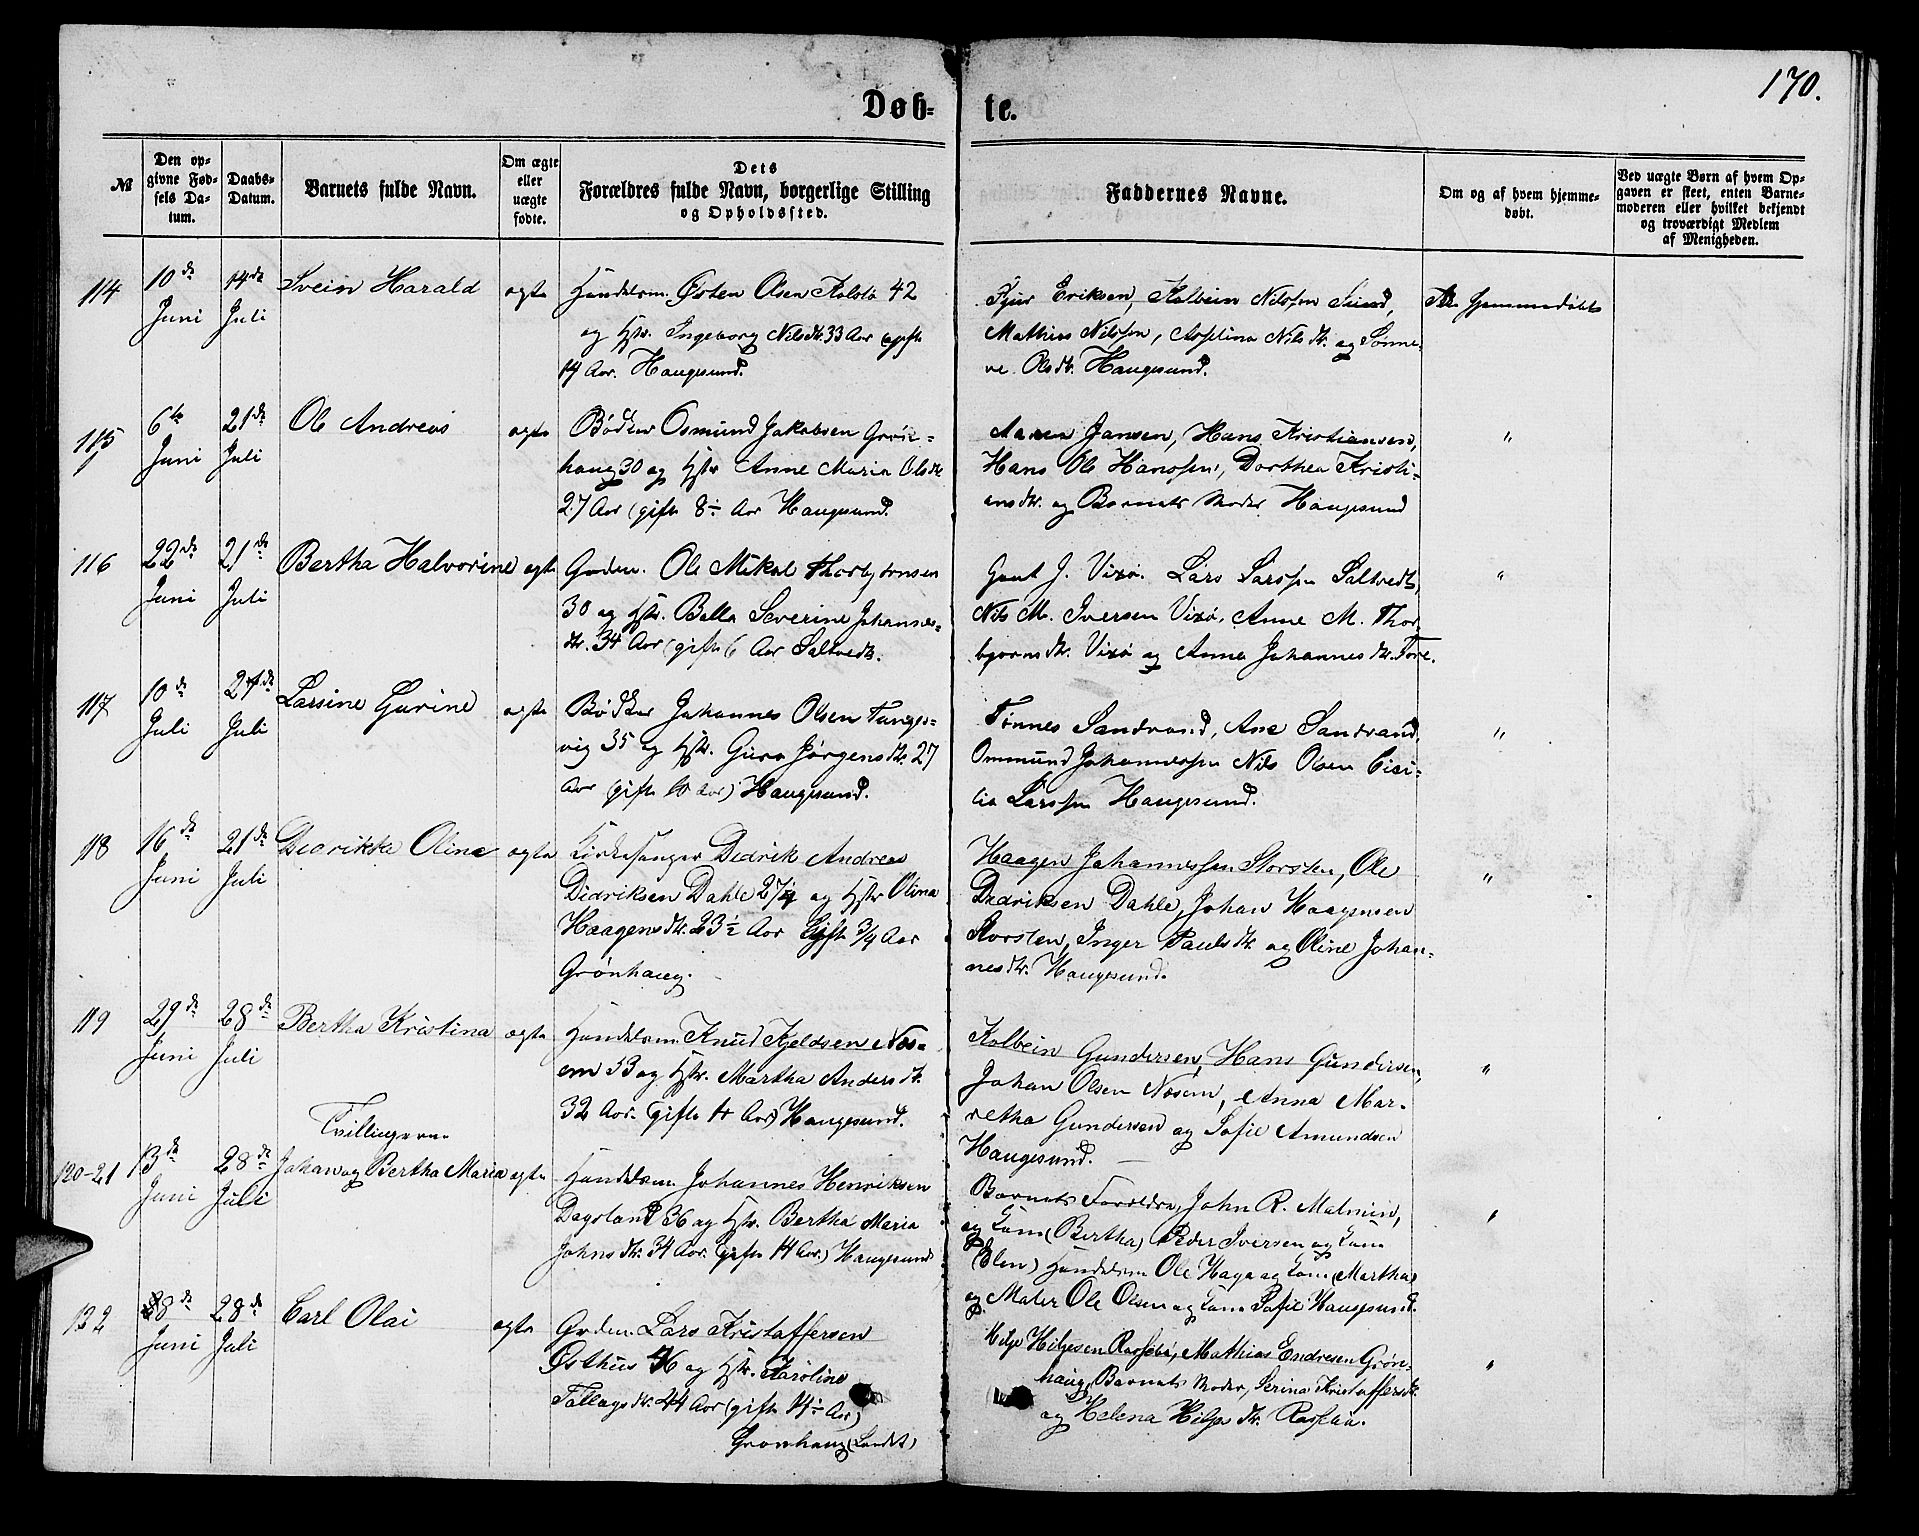 170.
Døb- te.
№
Den op-
givne Fød-
sels Da-
tum.
Daabs-
Datum.
Barnets fulde Navn.
Om ægte
eller
uægte
fødte.
Dets
Forældres fulde Navn, borgerlige Stilling
og Opholdssted.
Faddernes Navne.
Om og af hvem hjemme-
døbt.
Ved uægte Børn af hvem Op-
gaven er skeet, enten Barne-
moderen eller hvilket bekjendt
og troværdigt Medlem
af Menigheden.
114
10de
Juni
14de
Juli
Svein Harald
ægte
Handelsm. Østen Olsen Kolstø 42
og Hstr. Ingeborg Nilsdtr. 33 Aar (gift
14 Aar. Haugesund.
Eriksen, Kolbein Nilssen Sund,
Mathias Nilssen, Asseline Nilsdtr. og Sønne-
ve Olsdtr. Haugesund.
hjemmedøbt
115
6te
Juni
21de
Juli
Ole Andreas
ægte
Bødker Osmund Jakobsen Grøn-
haug 30 og Hstr Anne Maria Olsdtr
27 Aar (gift 8½ Aar Haugesund.
Jansen, Hans Kristiansen,
Hans Ole Hanssen, Dorthea Kristi-
ansdtr. og Barnets Moder Haugesund
"
116
22de
Juni
21de
Juli
Bertha Halvorine
ægte
Gadm. Ole Mikal Thorbjørnsen
30 og Hstr. Bella Severine Johannes-
dtr. 34 Aar (gift 6 Aar Saltvedt.
Gaut J. Vixø. Lars Larssen Saltvedt,
Nils M. Iversen Vixø, Anne M. Thor-
bjørnsdtr. Vixø og Anna Johannesdtr. Føre.
"
117
10de
Juli
21de
Juli
Larsine Gurine
ægte
Bødker Johannes Olsen Tanges-
vig 35 og Hstr. Guro Jørgensdtr. 27
Aar (gift 10 Aar) Haugesund.
Tønnes Sandvand, Ane Sandvand,
Ommund Johannessen Nils Olsen Cici-
lia Larssen Haugesund.
"
118
16de
Juni
21de
Juli
Didrikke Oline
ægte
Kirkesanger Didrik Andreas
Didriksen Dahle 27¼ og Hstr Olina
Haagensdtr. 23½ Aar Gift ¾ Aar
Grønhaug.
Haagen Johannessen Storsten, Ole
Didriksen Dahle, Johan Haagensen
Storsten, Inger Paulsdtr og Oline Johan-
nesdtr. Haugesund.
"
119
29de
Juni
28de
Juli
Bertha Kristina
ægte
Handelsm. Knud Kjeldsen Næs-
em 33 og Hstr. Martha Andersdtr.
32 Aar. (gift 10 Aar) Haugesund.
Kolbein Gundersen, Hans Gundersen,
Johan Olsen Næsem, Anna Mar-
retha Gundersen og Sofie Amundsen
Haugesund.
"
Tvillingerne
120-21
13de
Juni
28de
Juli
Johan og Bertha Maria
ægte
Handelsm. Johannes Henriksen
Dagsland 36 og Hstr. Bertha Maria
Johnsdtr. 34 Aar. (gift 14 Aar.) Haugesund
Barnets Forældre, John R. Malmin,
og Kone (Bertha) Peder Iversen og Kone
Elen) Handelsm Ole Haga og Kone (Martha)
og Maler Ole Olsen og Kone Sofie Haugesund.
"
122
28de
Juni
28de
Juli
Carl Olai
ægte
Gadm. Lars Kristoffersen
Østhus 46 og Hstr. Karoline
Tollagsdtr. 44 Aar (gift 14½ Aar)
Grønhaug (Landet)
Helje Heljesen Rossebø, Mathias Endresen Grøn-
haug, Barnets Moder, Serina Kristoffersdtr.
og Helena Heljesdtr. Rossebø.
"